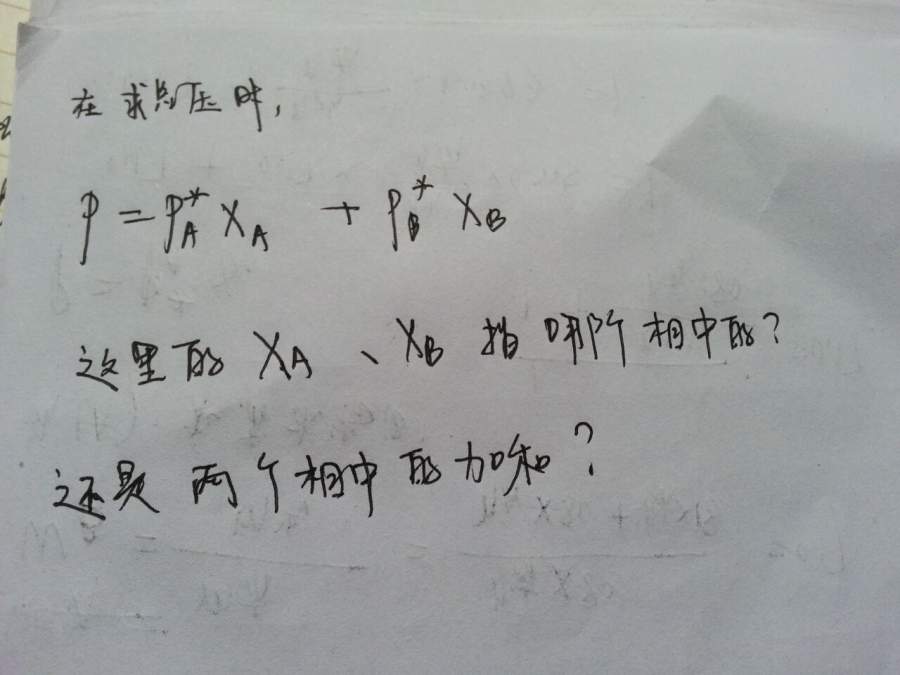 在求总压时，
P = P*A XA + P*B XB
这里的 XA、XB 指哪个相中的？
还是两个相中的加和？